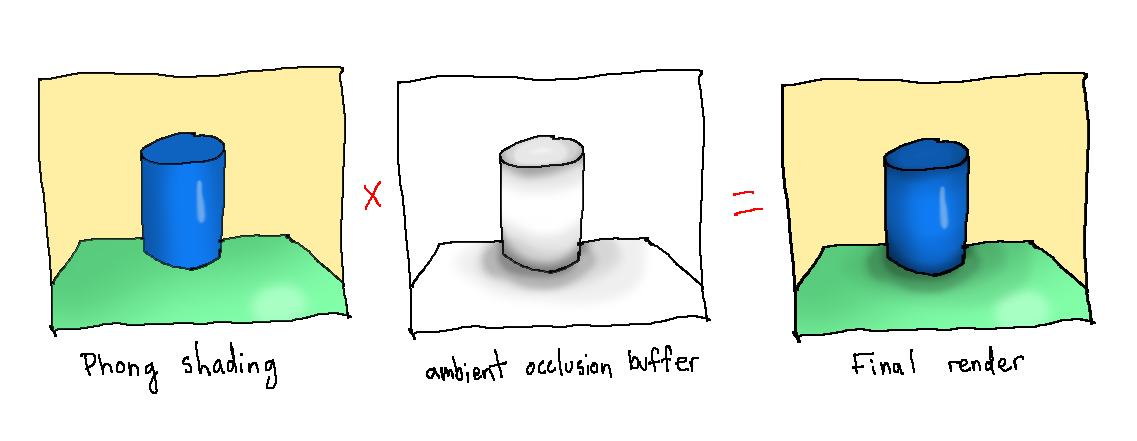 x
=
Phong shading
ambient occlusion buffer
Final render